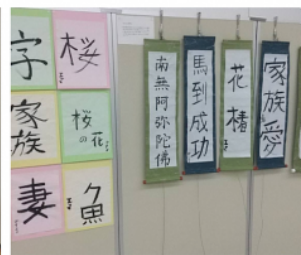 字
桜
家族
桜の花
妻
魚
南無阿弥陀佛
馬到成功
花椿
家族愛